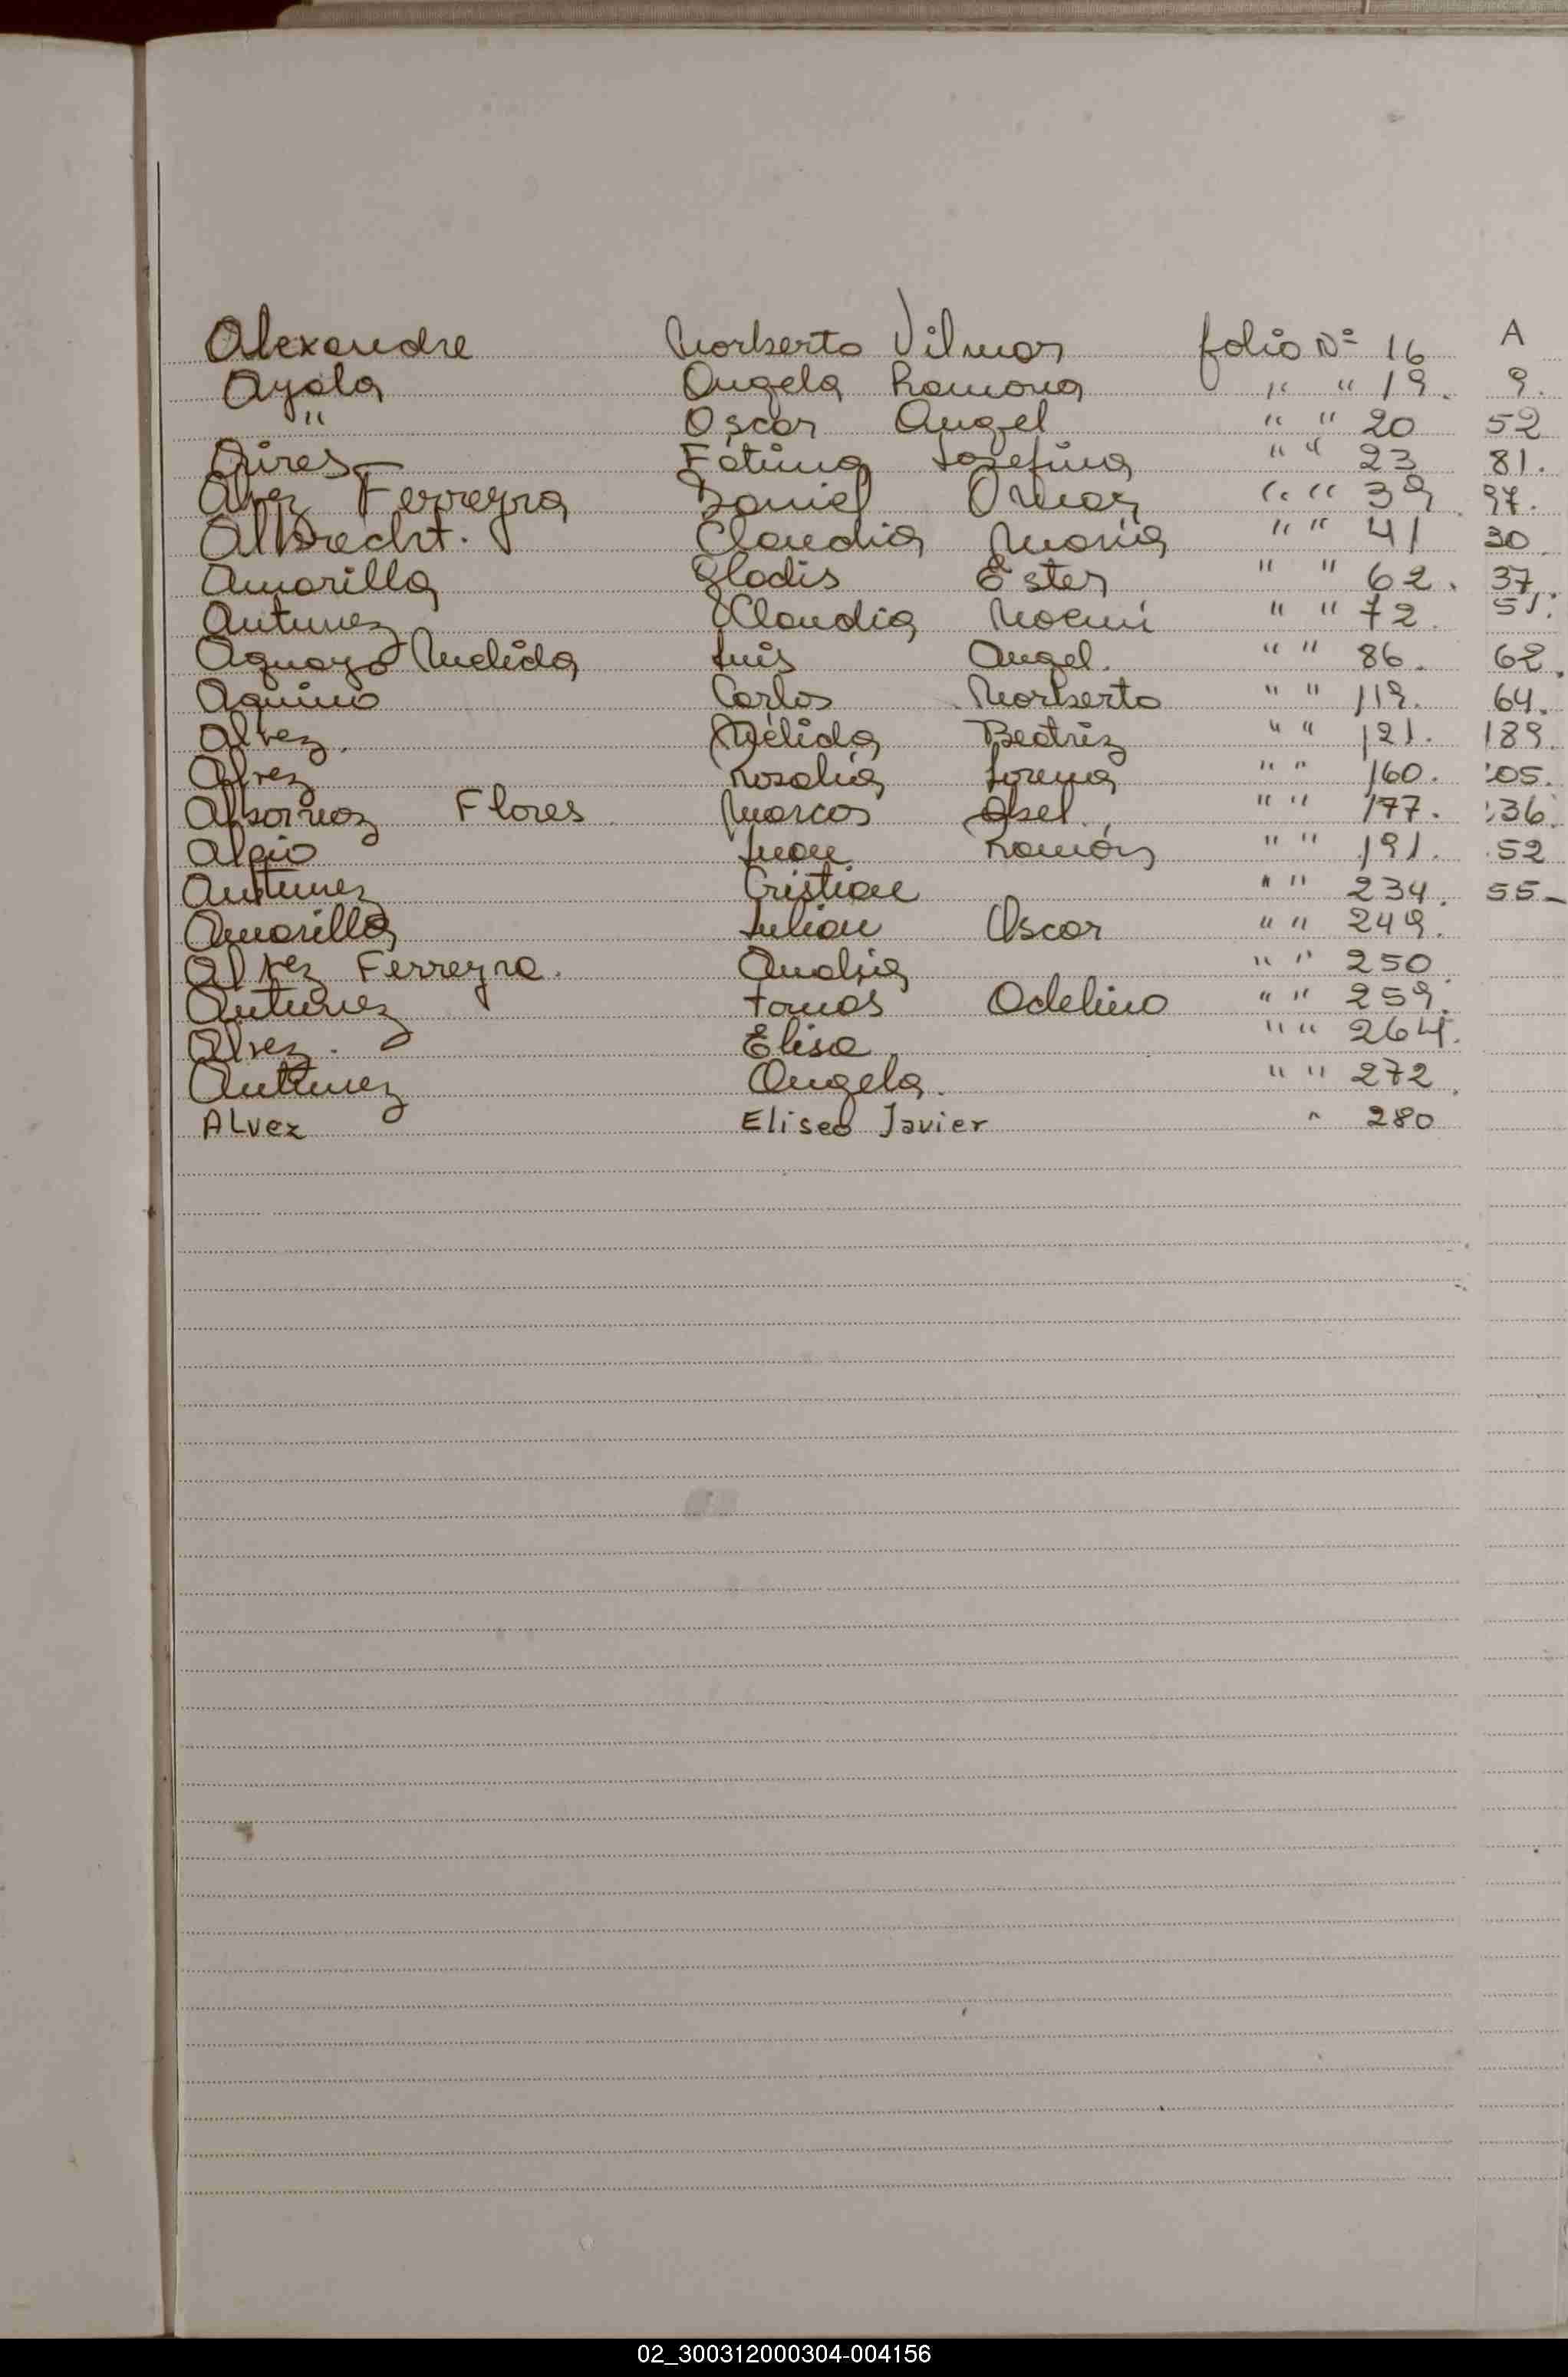 Alexandre Norberto Vilmar folio Nº 16 A
Ayala Angela Ramona " " 19. 9.
" Oscar Angel " " 20 52
Aires Fátima Josefina " " 23 81.
Alvez Ferreyra Daniel Omar " " 39 97.
Albrecht. Claudia Maria " " 41 30
Amarilla Gladis Ester " " 62. 37.
Antunez Claudia Noemi " " 72. 51.
Aguayo Melida Luis Angel. " " 86. 62.
Aquino Carlos Norberto " " 119. 64.
Alvez. Nélida Beatriz " " 121. 189.
Alvez Rosalia Lorena " " 160. 05.
Albornoz Flores Marcos " " 177. 36.
Juan Ramón " " 191. 52
Antunez Cristian " " 234. 55-
Amarilla Julian Oscar " " 249.
Alvez Ferreyra. Analia " " 250
Antunez Tomas Odelino " " 259.
Alvez. Elisa " " 264.
Antunez Angela. " " 272.
ALvez Eliseo Javier " 280
02_300312000304-004156